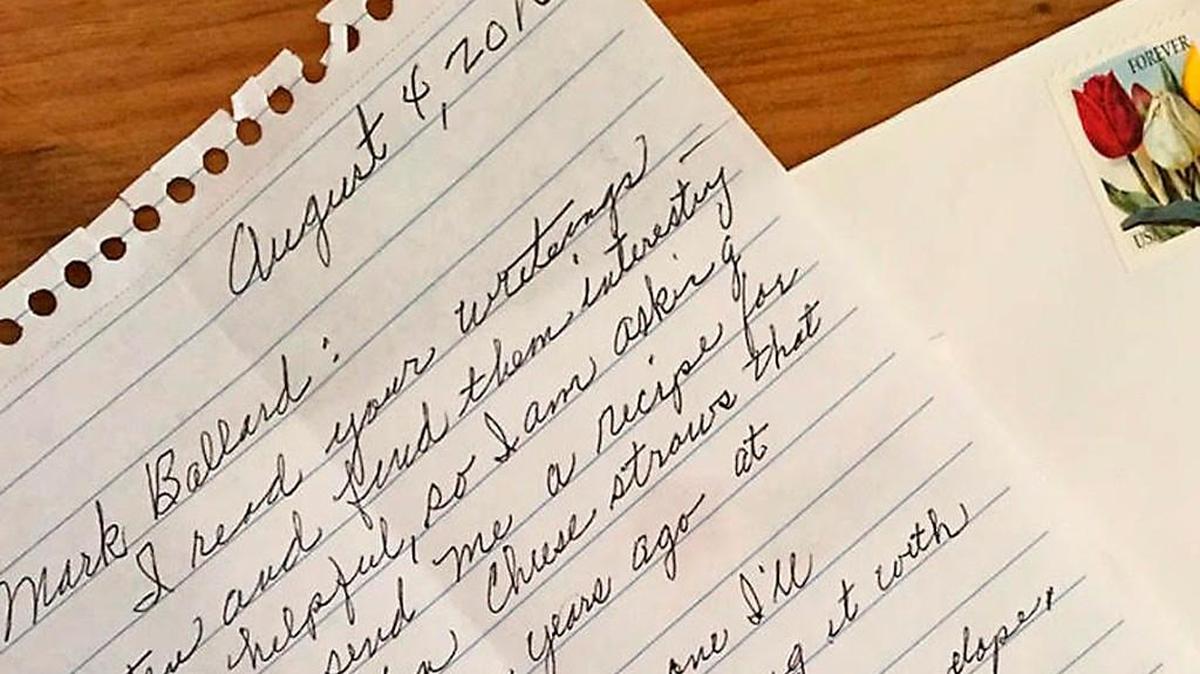 August 4, 201
Mark Ballard:
I read your writeings
and find them interesting
helpful, so I am asking
send me a recipe for
Cheese straws that
years ago at
one I'll
it with
FOREVER